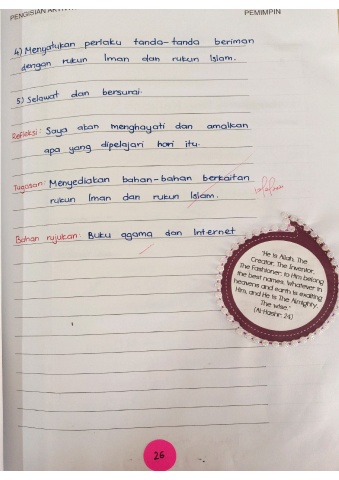 PENGISIAN
PEMIMPIN
4) Menyatukan perlaku tanda-tanda beriman
dengan rukun Iman dan rukun Islam.
5) Selawat dan bersurai.
Refleksi: Saya akan menghayati dan amalkan
apa yang dipelajari hari itu.
Tugasan: Menyediakan bahan-bahan berkaitan
rukun Iman dan rukun Islam.
Bahan rujukan: Buku agama dan Internet
"He is Allah, The
Creator, The Inventor,
The Fashioner; to Him belong
the best names. Whatever in
heavens and earth is exalting
Him, and He is The Almighty,
The wise."
(Al-Hashr: 24)
26